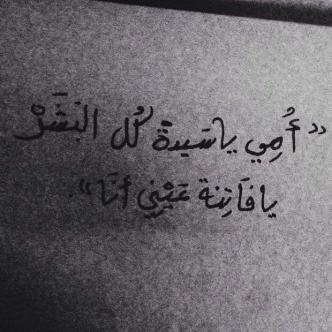 "أُمِي ياسَيدةً كُل البَشَرْ
يافَاتِنة عَيْنِي أنَا"